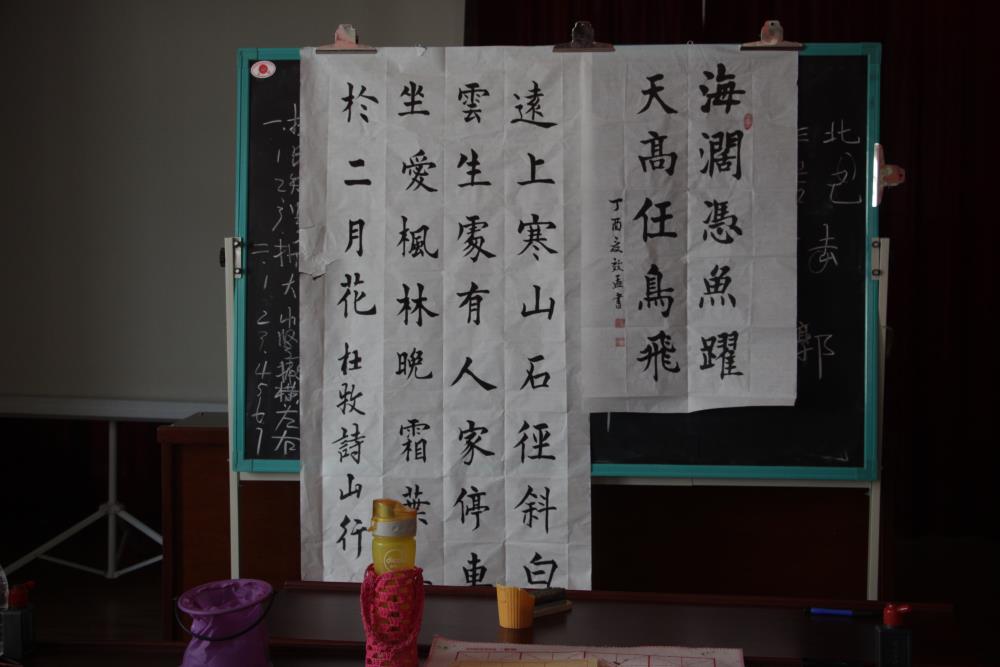 北邑去郭
海濶憑魚躍
天髙任鳥飛
丁酉夏孟書
遠上寒山石徑斜白
雲生處有人家停車
坐愛楓林晚霜葉
於二月花杜牧詩山行
一.
1
2
3.
二.1
2
3.
4
5
6
7